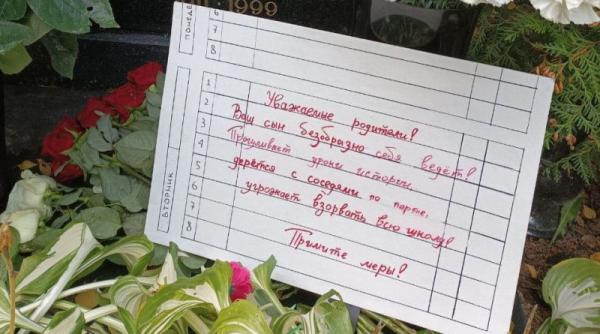 1999
ПОНЕДЕ
6
7
8
ВТОРНИК
1
2
3
4
5
6
7
8
Уважаемые родители!
Ваш сын безобразно себя ведёт!
Прогуливает уроки истории,
дерётся с соседями по парте,
угрожает взорвать всю школу!
Примите меры!